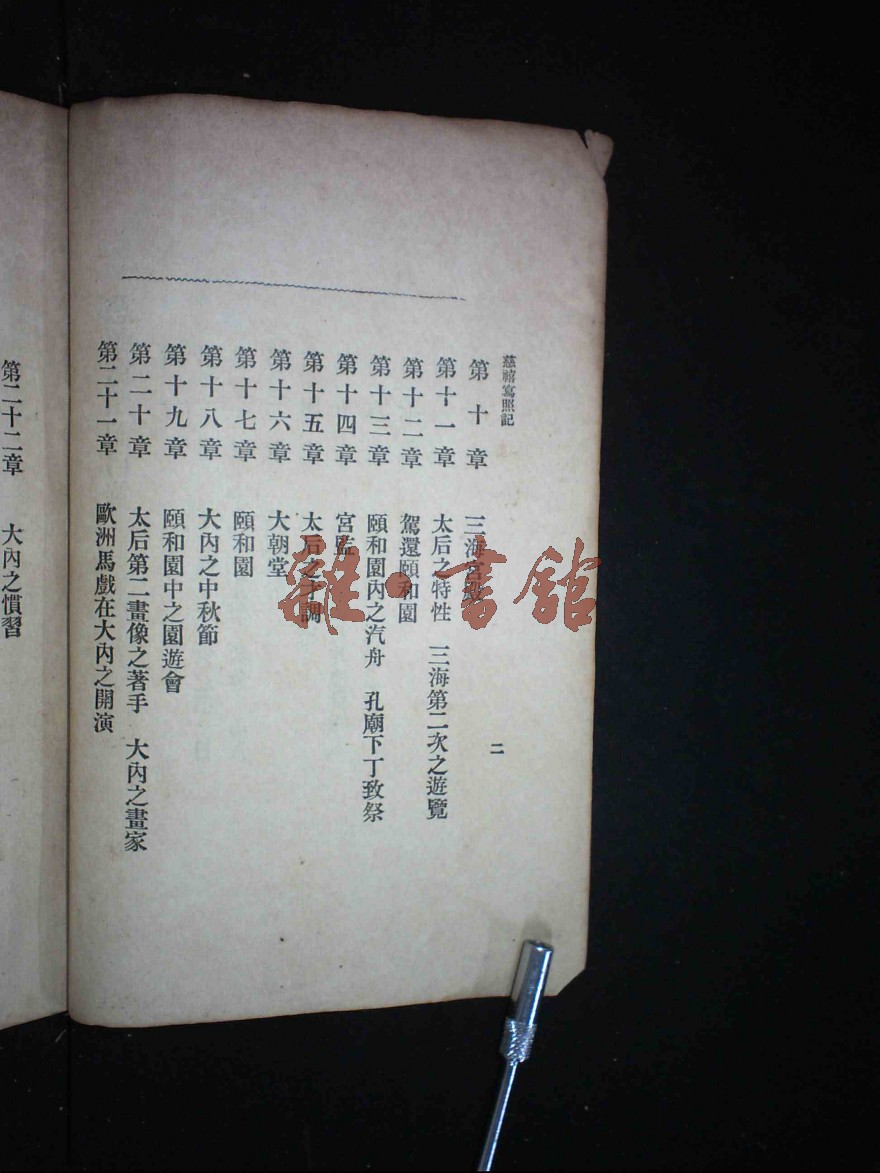 慈禧寫照記
第十章 三海宮殿
第十一章 太后之特性 三海第二次之遊覽
第十二章 駕還頤和園
第十三章 頤和園內之汽舟 孔廟下丁致祭
第十四章 宮監
第十五章 太后之才調
第十六章 大朝堂
第十七章 頤和園
第十八章 大內之中秋節
第十九章 頤和園中之園遊會
第二十章 太后第二畫像之著手 大內之畫家
第二十一章 歐洲馬戲在大內之開演
二
第二十二章 大內之慣習
雜·書館